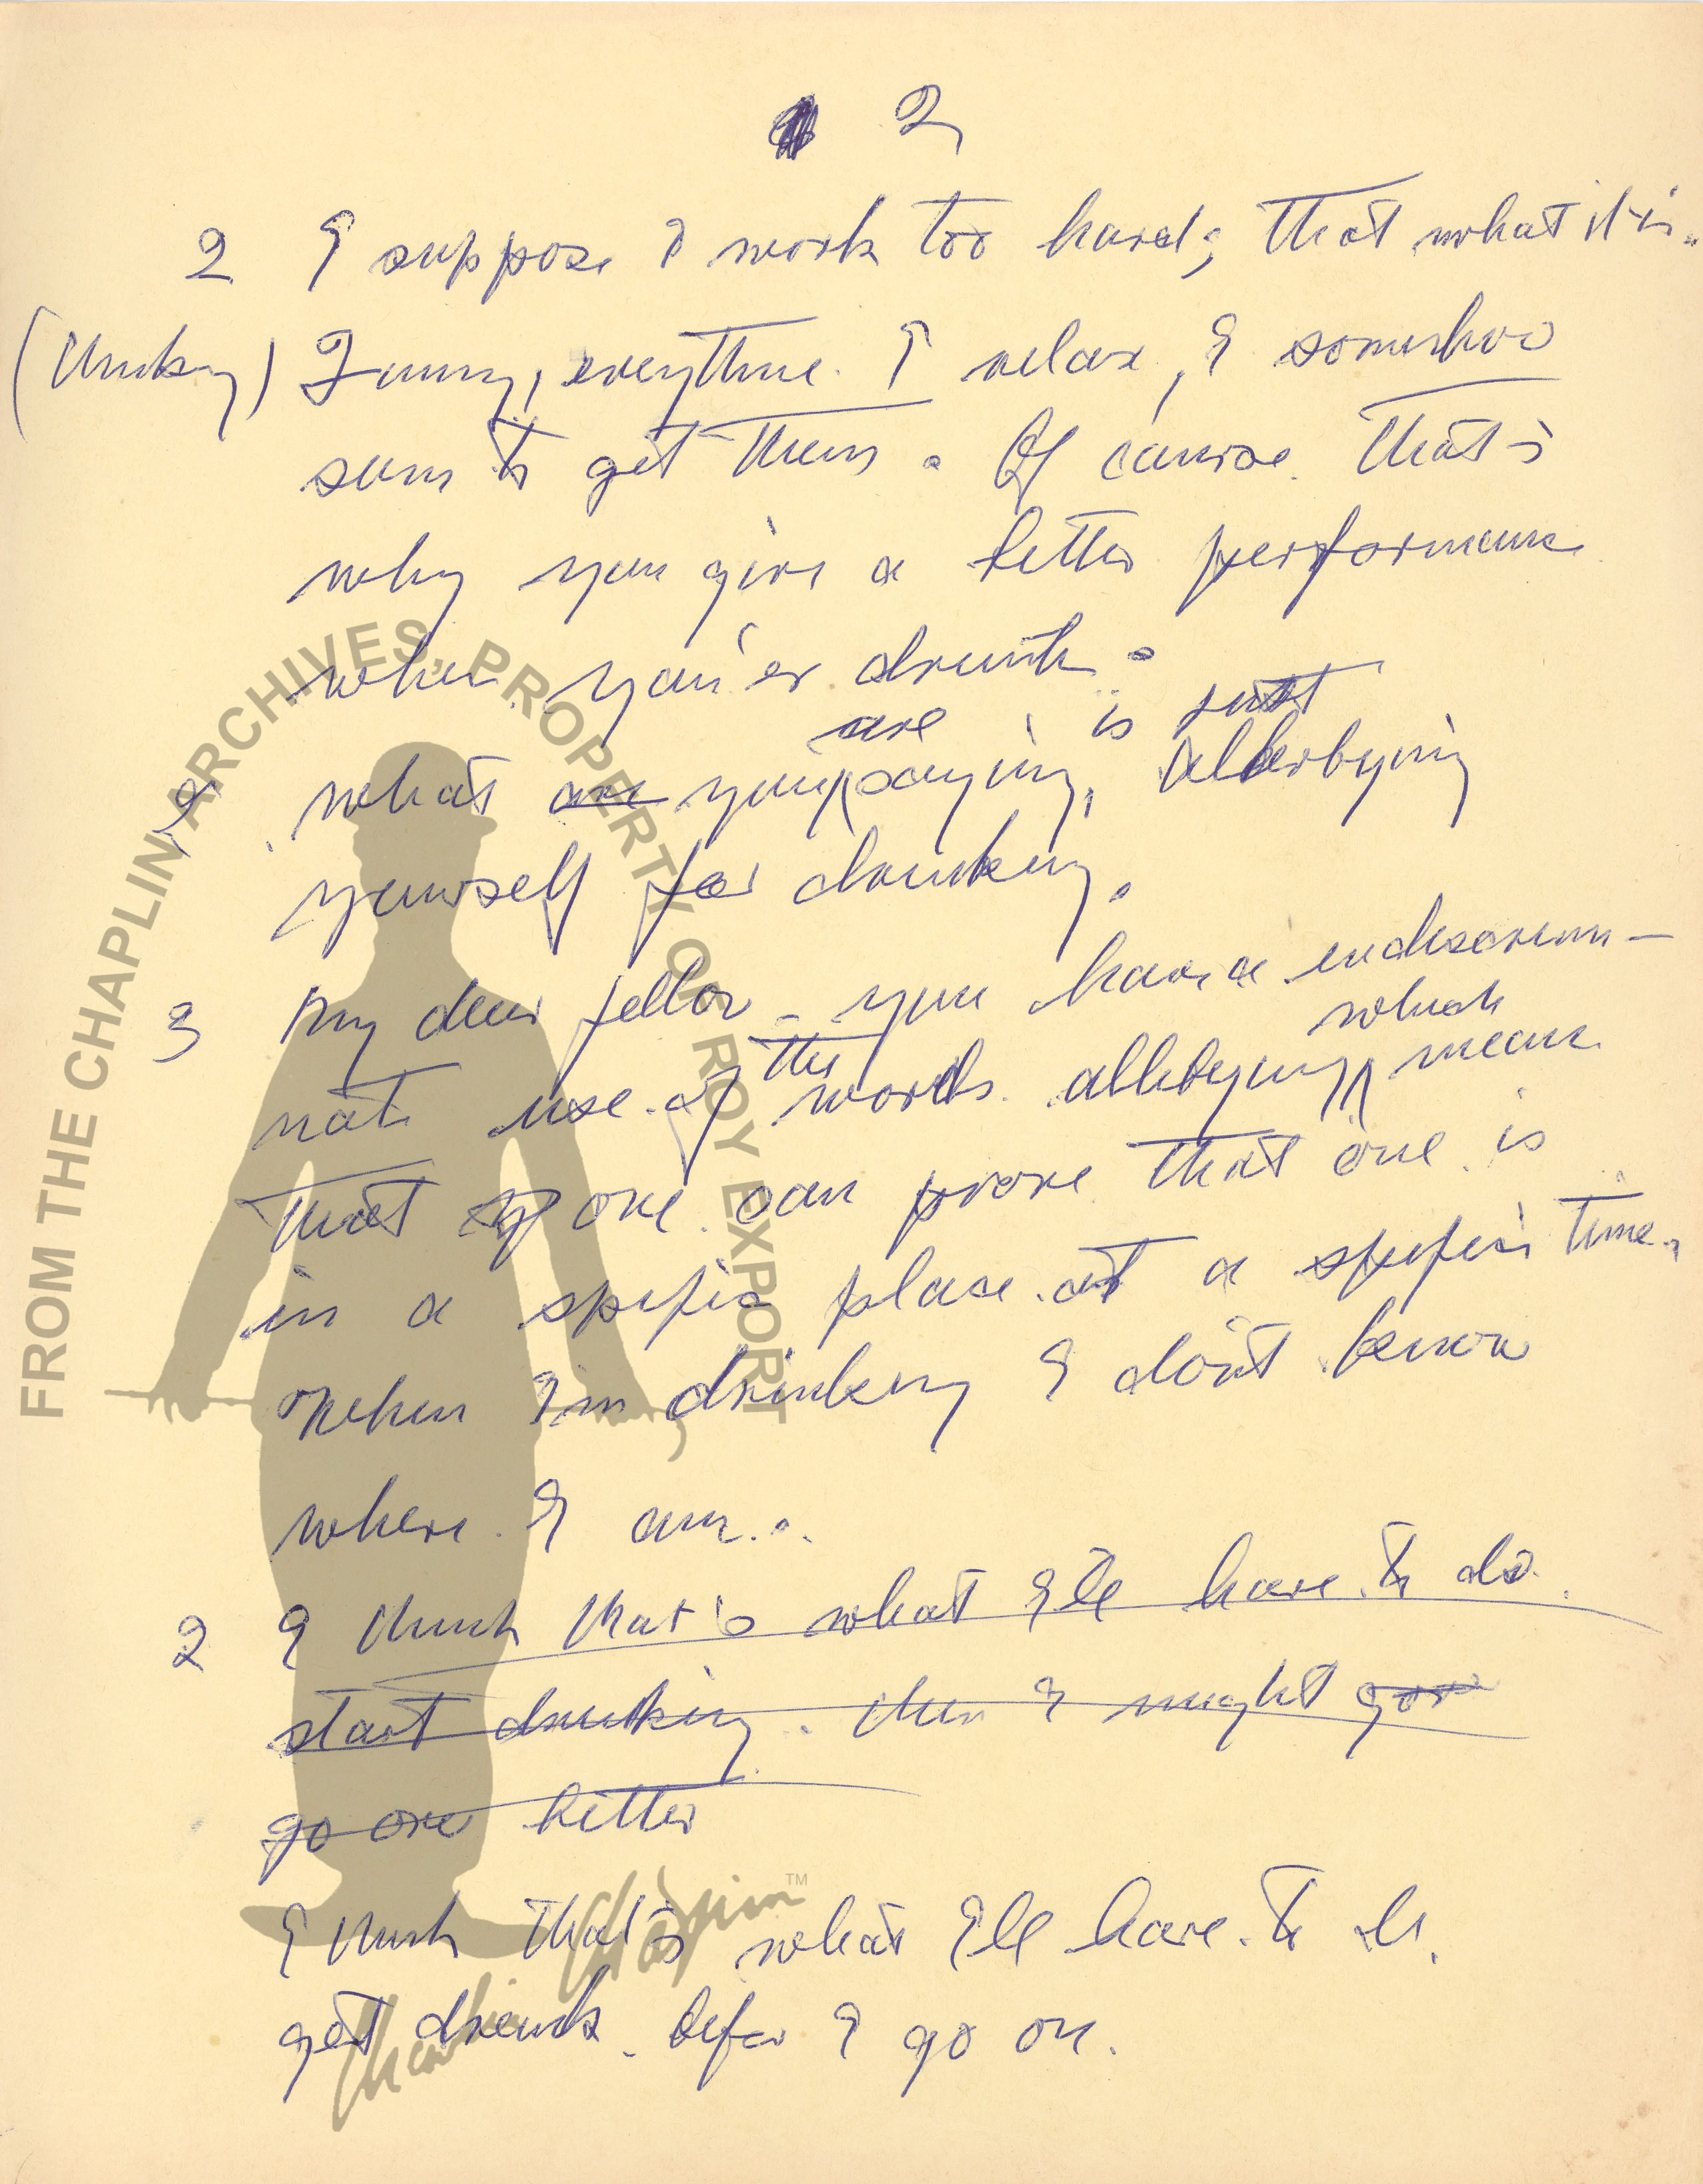 2
2 I suppose I work too hard; that what it is.
(thinking) Funny, everytime I relax, I somehoo
seem to get them. Of course that's
why you give a better performance
when you'er drunk.
are is just
2 what are you saying, allibying
yourself for drinking.
3 My dear fellor - you have a indiscrim-
the which
nate use of words allibying mean
that if one can prove that one is
in a spefic place at a spefic time.
when I'm drinking I don't know
where I am.
2 I think that's what I'll have to do.
start drinking. then I might goo
go over better
I think that's what I'll have to do.
get drunk befor I go on.
FROM THE CHAPLIN ARCHIVES, PROPERTY OF ROY EXPORT
Charlie Chaplin™